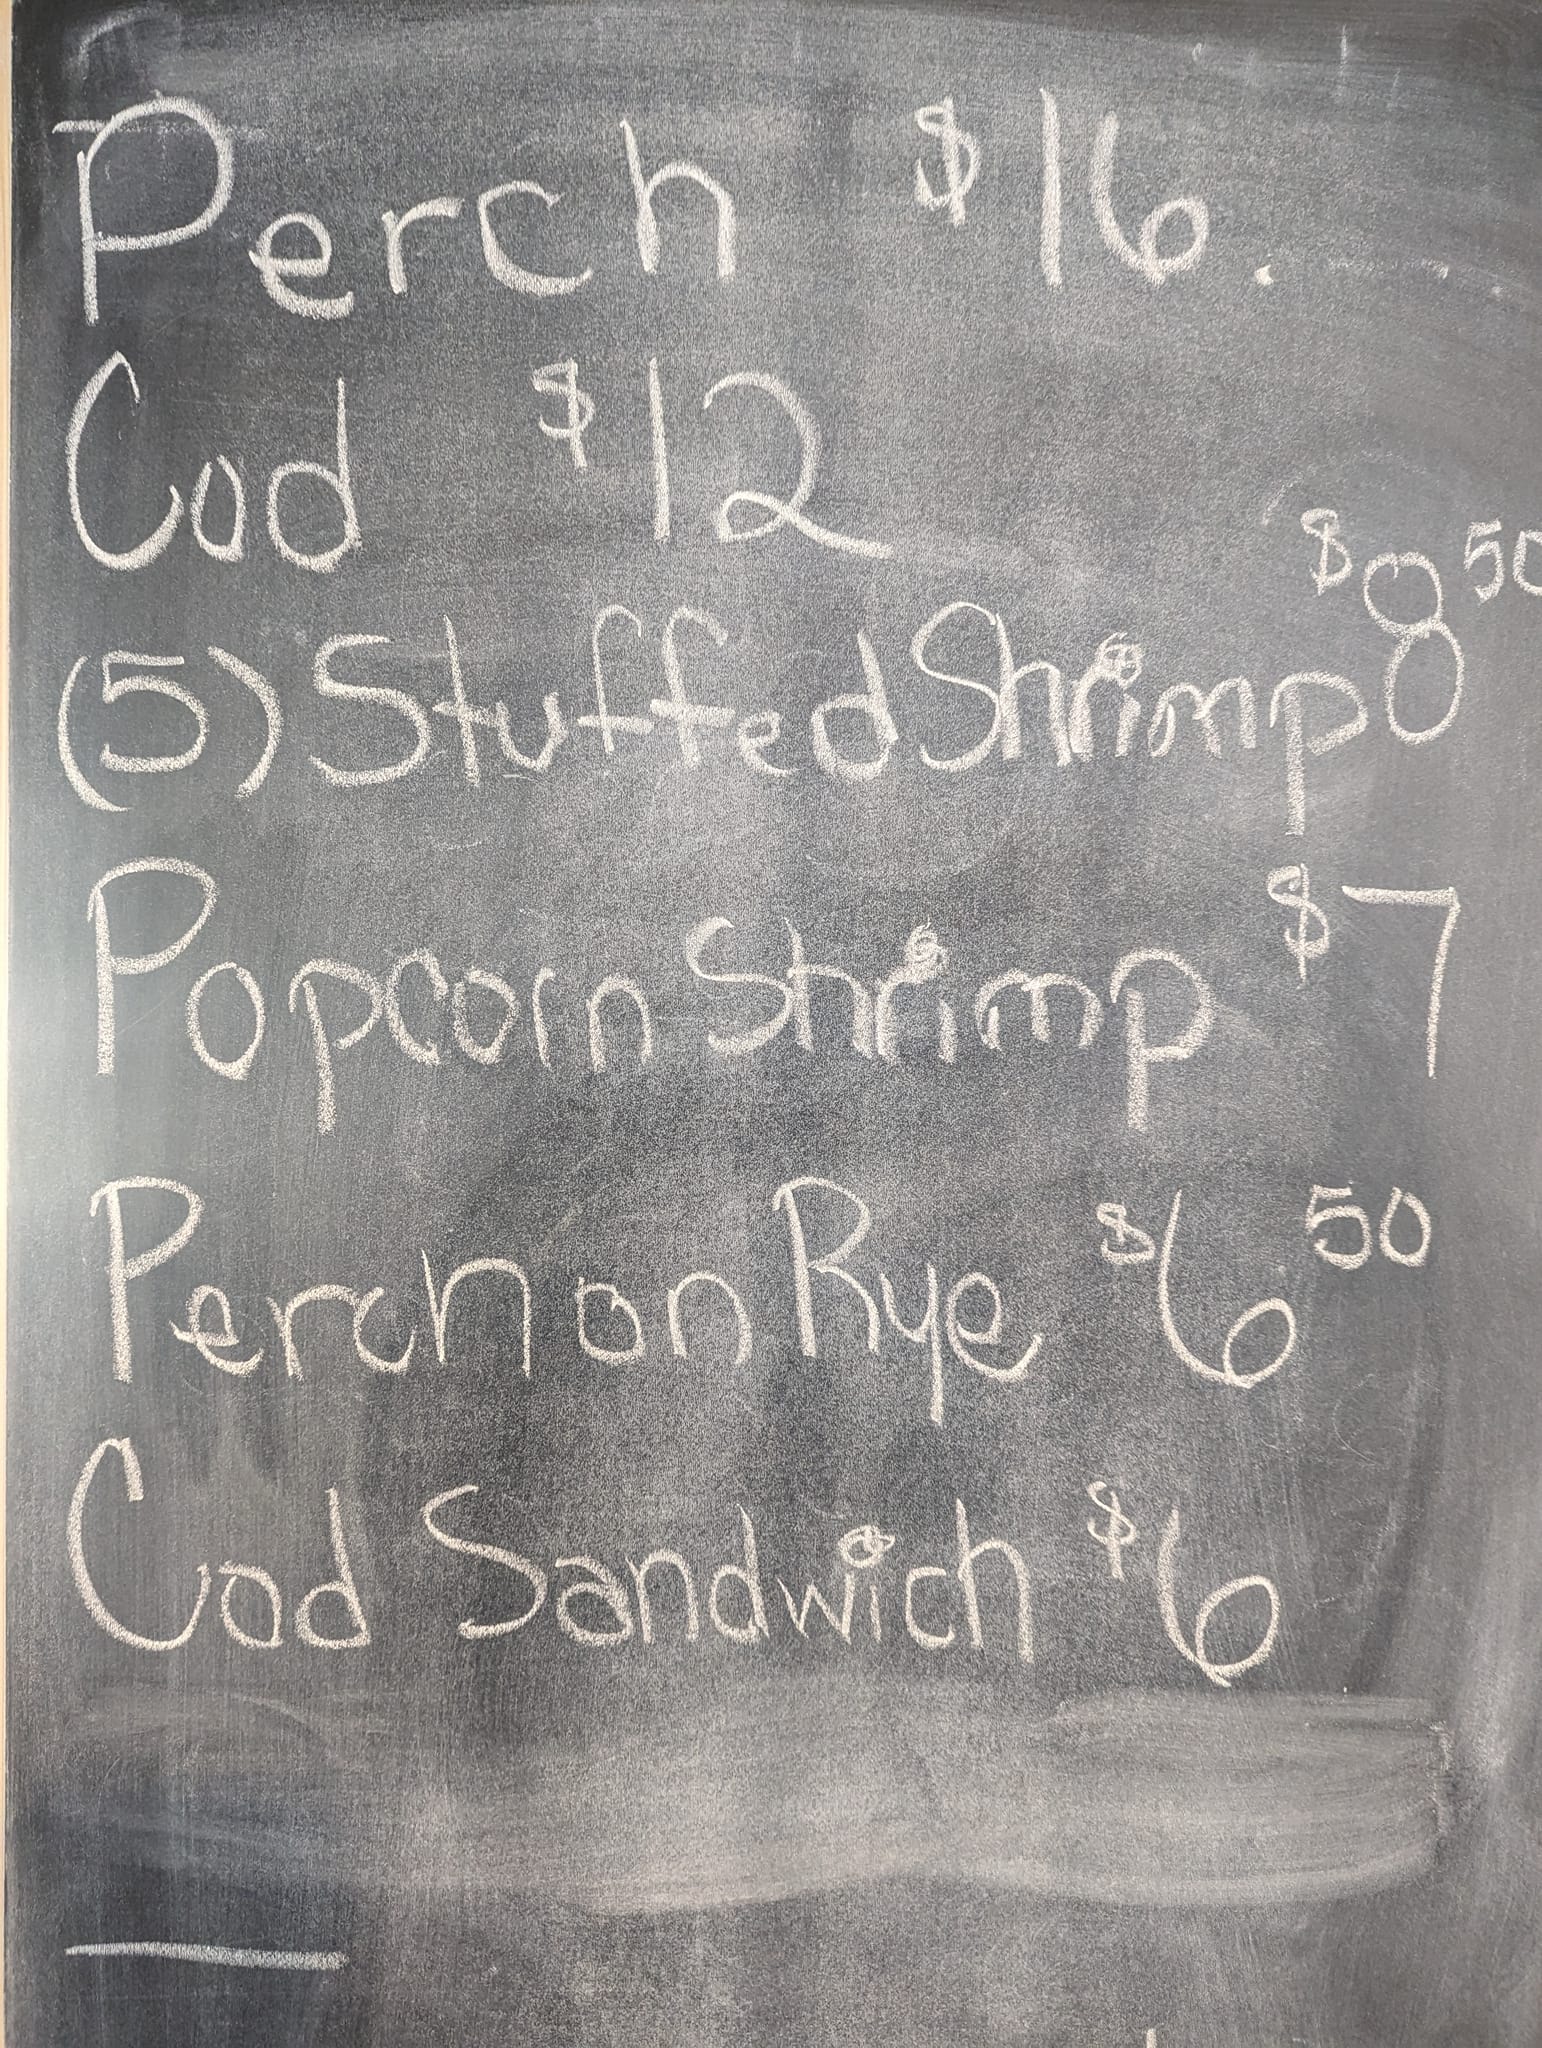 Perch $16.
Cod $12
(5) Stuffed Shrimp $8 50
Popcorn Shrimp $7
Perch on Rye $6 50
Cod Sandwich $6